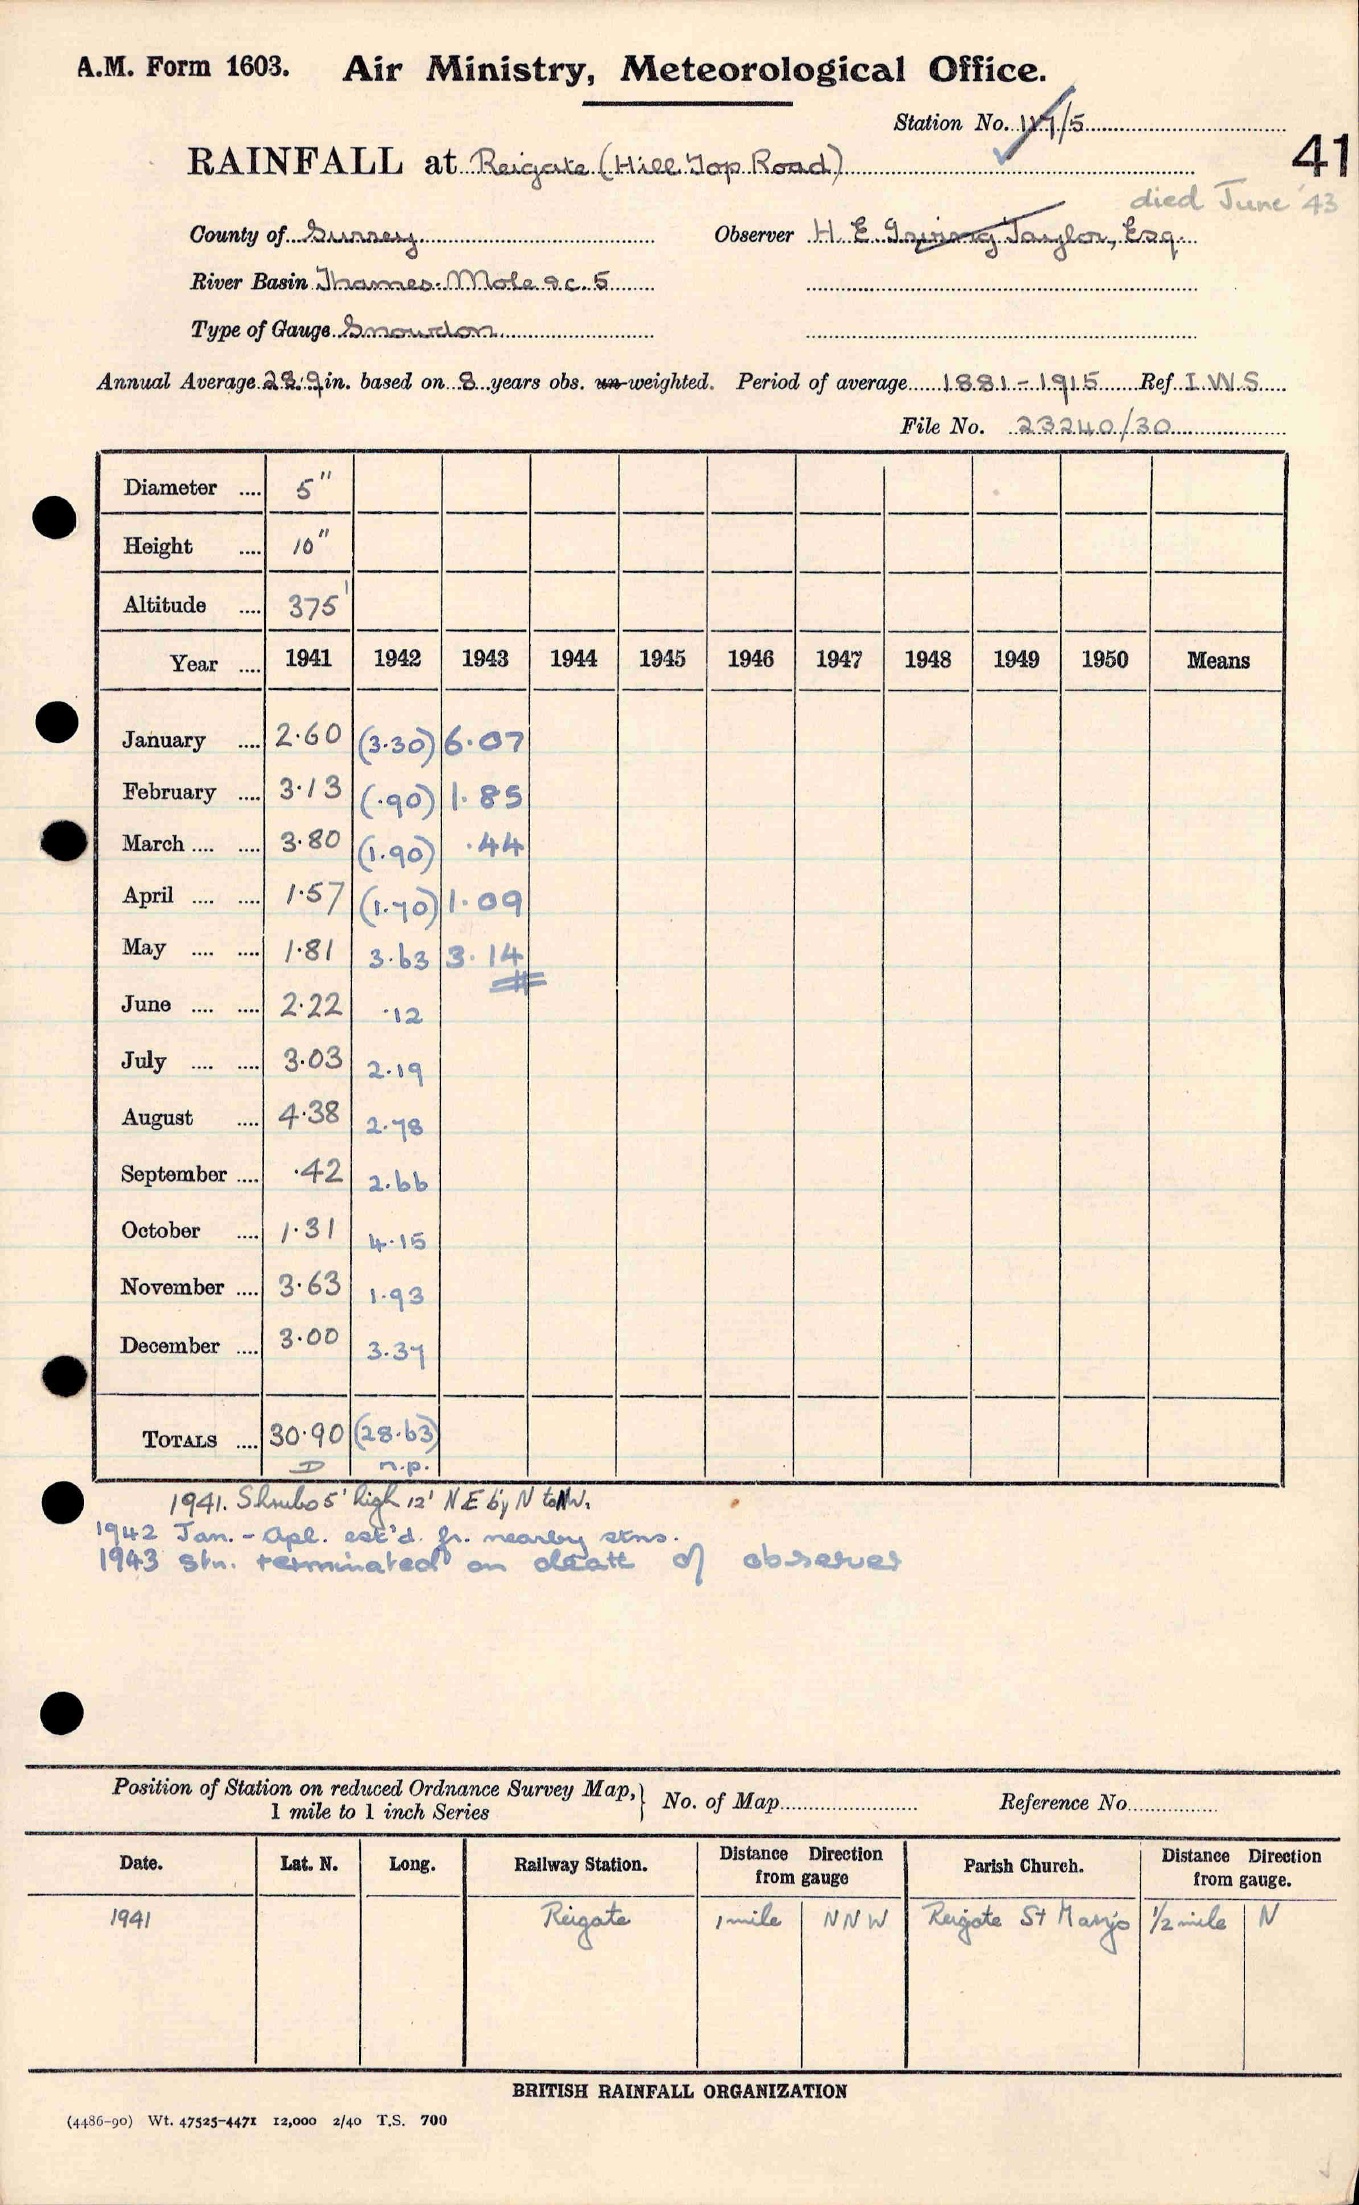 A.M. Form 1603. Air Ministry, Meteorological Office.
Station No. 117/5
41
RAINFALL at Reigate (Hill Top Road)
died June '43
County of Surrey Observer H. E. Taylor, Esq.
River Basin Thames. Mole &c. 5
Type of Gauge Snowdon
Annual Average 28.9 in. based on 8 years obs. un-weighted. Period of average 1881-1915 Ref I.W.S.
File No. 23240/30
Diameter .... 5"
Height .... 10"
Altitude .... 375'
Year .... 1941 1942 1943 1944 1945 1946 1947 1948 1949 1950 Means
January .... 2.60 (3.30) 6.07
February .... 3.13 (.90) 1.85
March .... .... 3.80 (1.90) .44
April .... .... 1.57 (1.70) 1.09
May .... .... 1.81 3.63 3.14
June .... .... 2.22 .12
July .... .... 3.03 2.19
August .... 4.38 2.78
September .... .42 2.66
October .... 1.31 4.15
November .... 3.63 1.93
December .... 3.00 3.37
TOTALS .... 30.90 (28.63)
D n.p.
1941. Shrubs 5' high 12' NE by N to NW.
1942 Jan. - Apl. est'd. fr. nearby stns.
1943 stn. terminated on death of observer
Position of Station on reduced Ordnance Survey Map, } No. of Map Reference No.
1 mile to 1 inch Series
Date. Lat. N. Long. Railway Station. Distance Direction from gauge Parish Church. Distance Direction from gauge.
1941 Reigate 1 mile NNW Reigate St Mary's 1/2 mile N
BRITISH RAINFALL ORGANIZATION
(4486-90) Wt. 47525-4471 12,000 2/40 T.S. 700